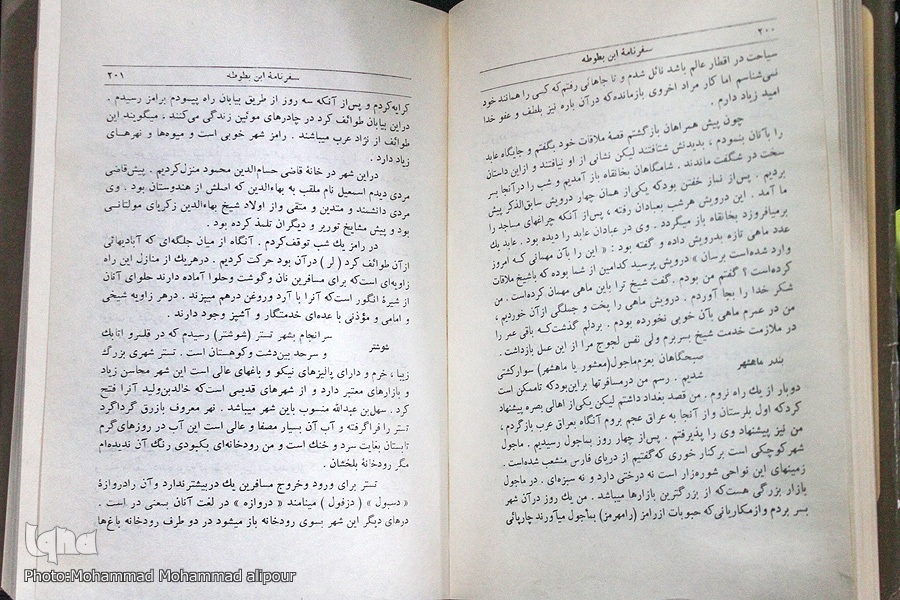 ۲۰۰
سفرنامهٔ ابن بطوطه
سیاحت در اقطار عالم باشد نائل شدم و تا جاهائی رفتم‌که کسی را همانند خود
نمی‌شناسم اما کار مراد اخروی بازمانده‌که درآن باره نیز بلطف و عفو خدا
امید زیاد دارم .
چون پیش همراهان بازگشتم قصهٔ ملاقات خود بگفتم و جایگاه عابد
را بآنان بنمودم ، بدیدنش شتافتند لیکن نشانی از او نیافتند و ازاین داستان
سخت در شگفت ماندند . شامگاهان بخانقاه باز آمدیم و شب را درآنجا بسر
بردیم . پس‌از نماز خفتن بودکه یکی‌از همان چهار درویش سابق‌الذکر پیش
ما آمد . این درویش هرشب بعبادان رفته ، پس‌از آنکه چراغهای مساجد را
برمیافروزد بخانقاه باز میگردد . وی در عبادان عابد را دیده بود . عابد یك
عدد ماهی تازه بدرویش داده و گفته بود : « این را بآن مهمانی که امروز
وارد شده‌است برسان » درویش پرسید کدامین از شما بوده که باشیخ ملاقات
کرده‌است ؟ گفتم من بودم . گفت شیخ ترا باین ماهی مهمان کرده‌است . من
شکر خدا را بجا آوردم . درویش ماهی را پخت و جملگی ازآن خوردیم ،
من در عمرم ماهی بآن خوبی نخورده بودم . بردلم گذشت‌که باقی عمر را
در ملازمت خدمت شیخ بسربرم ولی نفس لجوج مرا از این عمل بازداشت .
بندر ماهشهر
صبحگاهان بعزم‌ماجول(معشور یا ماهشهر) سوارکشتی
شدیم . رسم من درمسافرتها براین‌بودکه تاممکن است
دوبار از یك راه نروم . من قصد بغداد داشتم لیکن یکی‌از اهالی بصره پیشنهاد
کردکه اول بلرستان واز آنجا به عراق عجم بروم آنگاه بعراق عرب بازگردم ،
من نیز پیشنهاد وی را پذیرفتم . پس‌از چهار روز بماجول رسیدیم . ماجول
شهرکوچکی است برکنار خوری که‌گفتیم از دریای فارس منشعب شده‌است .
زمینهای این نواحی شوره‌زار است نه درختی دارد و نه سبزه‌ای . در ماجول
بازار بزرگی هست‌که از بزرگترین بازارها میباشد . من یك روز درآن شهر
بسر بردم وازمکاربانی‌که حبوبات ازرامز (رامهرمز) بماجول میآورند چارپائی
سفرنامهٔ ابن بطوطه
۲۰۱
کرایه‌کردم و پس‌از آنکه سه روز از طریق بیابان راه پیمودم برامز رسیدم .
دراین بیابان طوائف کرد در چادرهای موئین زندگی می‌کنند . میگویند این
طوائف از نژاد عرب میباشند . رامز شهر خوبی است و میوه‌ها و نهرهای
زیاد دارد .
دراین شهر در خانهٔ قاضی حسام‌الدین محمود منزل‌کردیم . پیش‌قاضی
مردی دیدم اسمعیل نام ملقب به بهاءالدین که اصلش از هندوستان بود . وی
مردی دانشمند و متدین و متقی واز اولاد شیخ بهاءالدین زکریای مولتانی
بود و پیش مشایخ توریر و دیگران تلمذ کرده بود .
در رامز یك شب توقف‌کردم . آنگاه از میان جلگه‌ای که آبادیهائی
ازآن طوائف کرد ( لر ) درآن بود حرکت کردیم . درهریك از منازل این راه
زاویه‌ای است‌که برای مسافرین نان وگوشت وحلوا آماده دارند حلوای آنان
از شیرهٔ انگور است‌که آنرا با آرد وروغن درهم میپزند . درهر زاویه شیخی
و امامی و مؤذنی با عده‌ای خدمتگار و آشپز وجود دارند .
شوشتر
سرانجام بشهر تستر (شوشتر) رسیدم که در قلمرو اتابك
و سرحد بین‌دشت وکوهستان است . تستر شهری بزرگ
زیبا ، خرم و دارای پالیزهای نیکو و باغهای عالی است این شهر محاسن زیاد
و بازارهای معتبر دارد و از شهرهای قدیمی است‌که خالدبن‌ولید آنرا فتح
کرد . سهل‌بن عبدالله منسوب باین شهر میباشد . نهر معروف بازرق گرداگرد
تستر را فراگرفته و آب آن بسیار مصفا و عالی است این آب در روزهای‌گرم
تابستان بغایت سرد و خنك است و من رودخانه‌ای بکبودی رنگ آن ندیده‌ام
مگر رودخانهٔ بلخشان .
تستر برای ورود وخروج مسافرین یك دربیشترندارد وآن رادروازهٔ
« دسبول » ( دزفول ) مینامند « دروازه » در لغت آنان بمعنی در است .
درهای دیگر این شهر بسوی رودخانه باز میشود در دو طرف رودخانه باغ‌ها
iqna
Photo:Mohammad Mohammad alipour